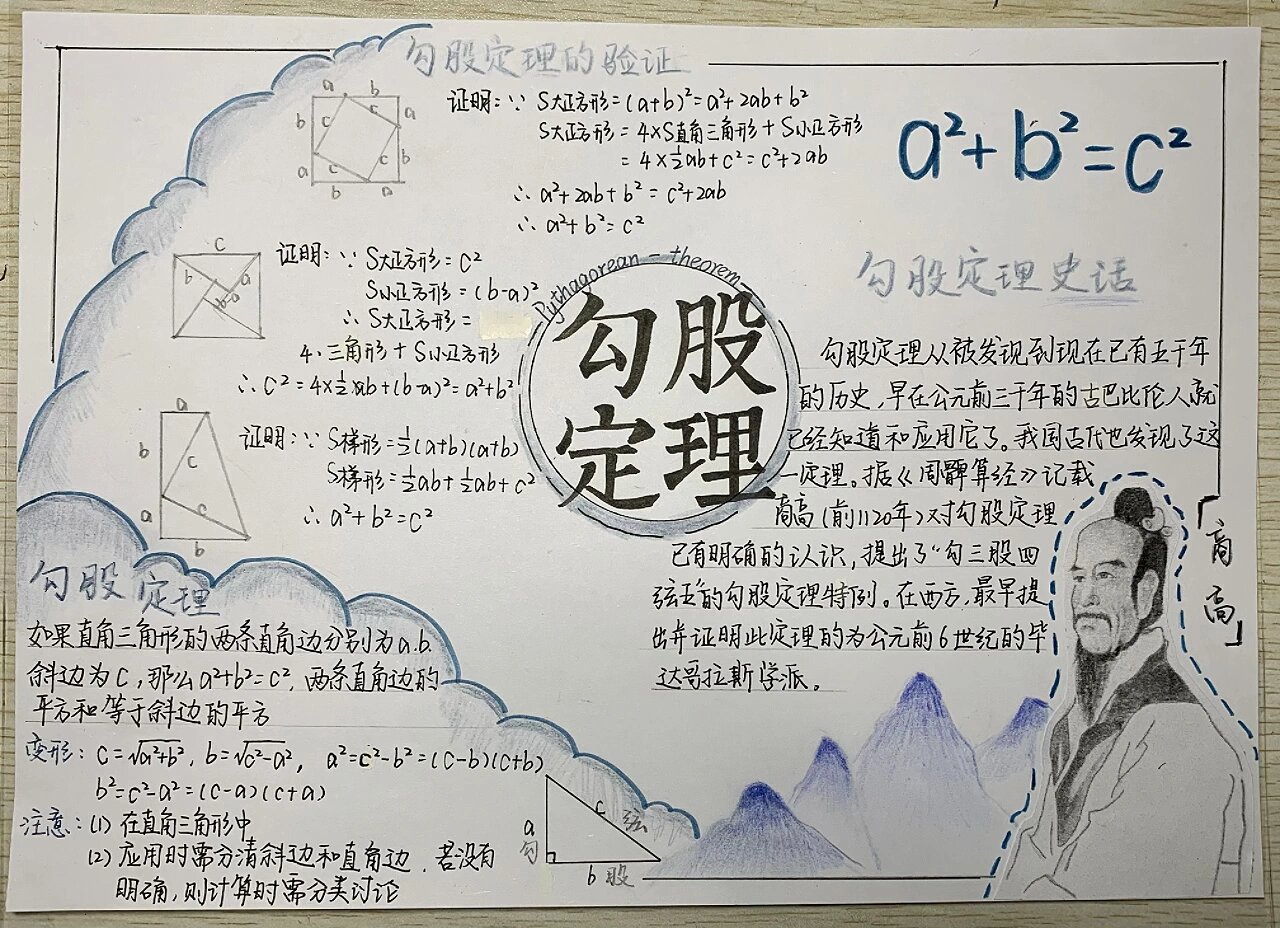 勾股定理的验证
a b
b c c a
a c c b
b a
证明:∵ S大正方形=(a+b)²=a²+2ab+b²
S大正方形=4×S直角三角形+S小正方形
=4×½ab+c²=c²+2ab
∴ a²+2ab+b²=c²+2ab
∴ a²+b²=c²
a²+b²=c²
c
b a
b-a
证明:∵ S大正方形=c²
S小正方形=(b-a)²
∴ S大正方形=
4·三角形+S小正方形
∴ c²=4×½×ab+(b-a)²=a²+b²
a
b c
a c
b
证明:∵ S梯形=½(a+b)(a+b)
S梯形=½ab+½ab+c²
∴ a²+b²=c²
Pythagorean-theorem
勾股
定理
勾股定理史话
勾股定理从被发现到现在已有五千年
的历史,早在公元前三千年的古巴比伦人就
已经知道和应用它了。我国古代也发现了这
一定理。据《周髀算经》记载
商高(前1120年)对勾股定理
已有明确的认识,提出了“勾三股四
弦五”的勾股定理特例。在西方,最早提
出并证明此定理的为公元前6世纪的毕
达哥拉斯学派。
「商高」
勾股定理
如果直角三角形的两条直角边分别为a.b.
斜边为c,那么a²+b²=c²,两条直角边的
平方和等于斜边的平方
变形:c=√a²+b²,b=√c²-a², a²=c²-b²=(c-b)(c+b)
b²=c²-a²=(c-a)(c+a)
注意:(1) 在直角三角形中
(2) 应用时需分清斜边和直角边.若没有
明确,则计算时需分类讨论
a c 弦
勾
b 股